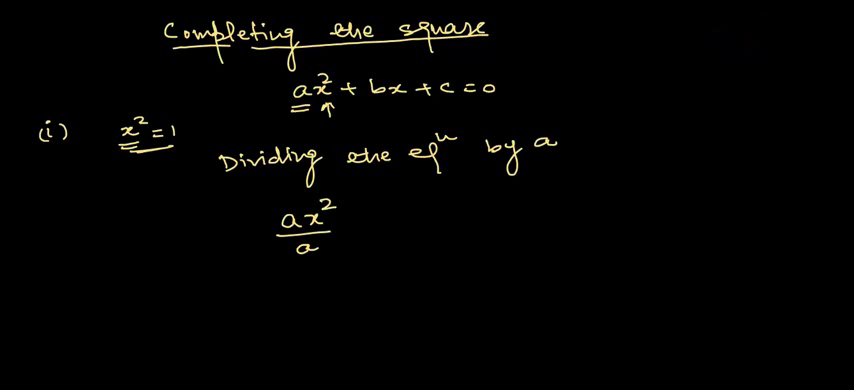 Completing the square
ax² + bx + c = 0
(i) x² = 1
Dividing the eqⁿ by a
ax²/a